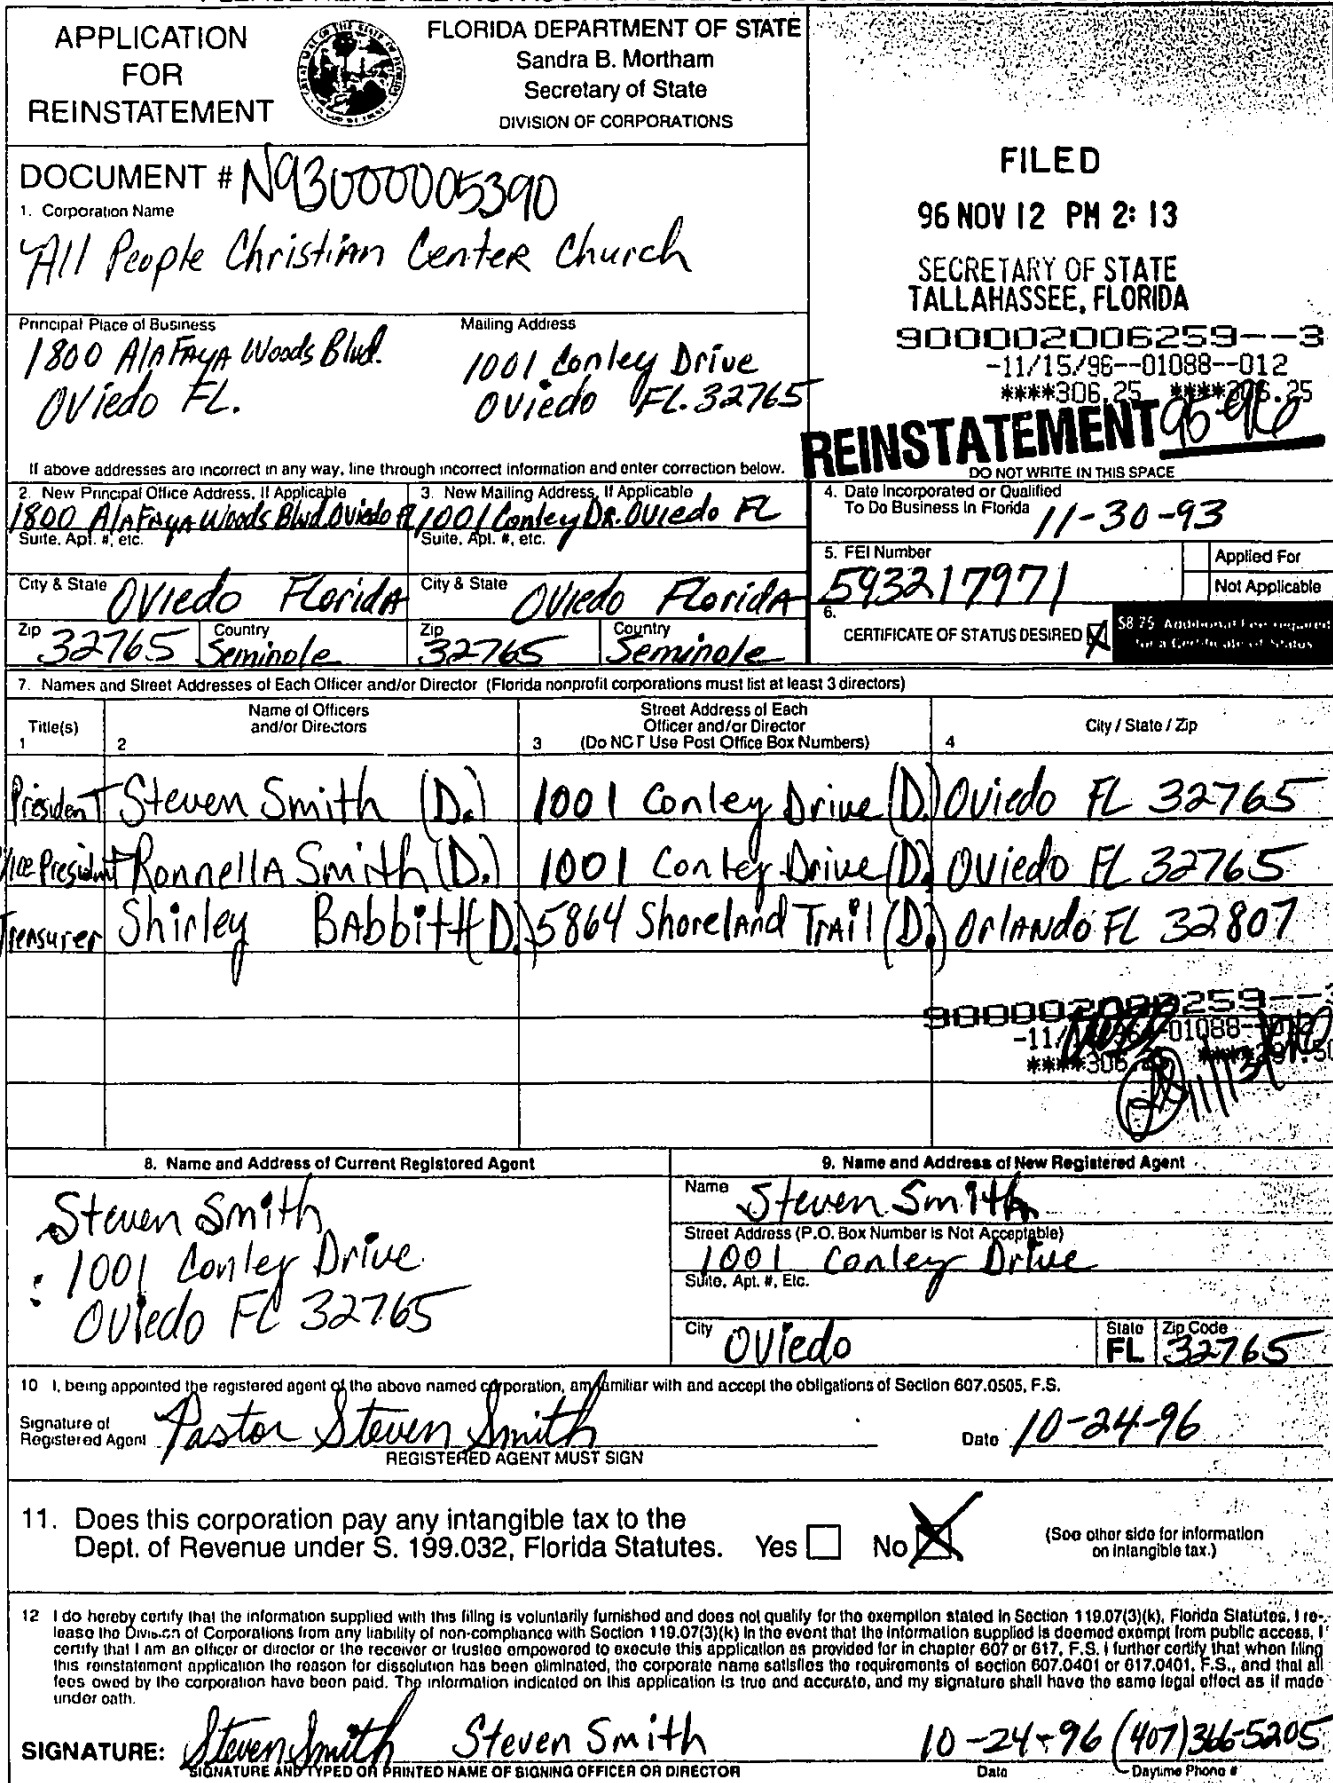 APPLICATION
FOR
REINSTATEMENT
FLORIDA DEPARTMENT OF STATE
Sandra B. Mortham
Secretary of State
DIVISION OF CORPORATIONS
FILED
96 NOV 12 PM 2:13
SECRETARY OF STATE
TALLAHASSEE, FLORIDA
900002006259--3
-11/15/96--01088--012
****306.25 ****306.25
REINSTATEMENT 95-96
DO NOT WRITE IN THIS SPACE
DOCUMENT # N93000005390
1. Corporation Name
All People Christian Center Church
Principal Place of Business
1800 AlAFAyA Woods Blvd.
Oviedo FL.
Mailing Address
1001 Conley Drive
Oviedo FL. 32765
If above addresses are incorrect in any way, line through incorrect information and enter correction below.
2. New Principal Office Address, If Applicable
1800 AlAFAyA Woods Blvd Oviedo Fl
Suite, Apt. #, etc.
City & State Oviedo FloridA
Zip 32765 Country Seminole
3. New Mailing Address, If Applicable
1001 Conley DR. Oviedo FL
Suite, Apt. #, etc.
City & State Oviedo FloridA
Zip 32765 Country Seminole
4. Date Incorporated or Qualified
To Do Business in Florida 11-30-93
5. FEI Number
593217971
Applied For
Not Applicable
6.
CERTIFICATE OF STATUS DESIRED X
$8.75 Additional Fee required
for a Certificate of Status
7. Names and Street Addresses of Each Officer and/or Director (Florida nonprofit corporations must list at least 3 directors)
Title(s)
1
Name of Officers
and/or Directors
2
Street Address of Each
Officer and/or Director
3 (Do NOT Use Post Office Box Numbers)
City / State / Zip
4
President Steven Smith (D.) 1001 Conley Drive (D.) Oviedo FL 32765
Vice President RonnellA Smith (D.) 1001 Conley Drive (D.) Oviedo FL 32765
Treasurer Shirley BAbbitt (D.) 5864 ShorelAnd TrAil (D.) OrlANdo FL 32807
8. Name and Address of Current Registered Agent
Steven Smith
1001 Conley Drive
Oviedo FL 32765
9. Name and Address of New Registered Agent
Name Steven Smith
Street Address (P.O. Box Number is Not Acceptable)
1001 Conley Drive
Suite, Apt. #, Etc.
City Oviedo
State FL
Zip Code 32765
10 I, being appointed the registered agent of the above named corporation, am familiar with and accept the obligations of Section 607.0505, F.S.
Signature of
Registered Agent Pastor Steven Smith
REGISTERED AGENT MUST SIGN
Date 10-24-96
11. Does this corporation pay any intangible tax to the
Dept. of Revenue under S. 199.032, Florida Statutes. Yes No X
(See other side for information
on intangible tax.)
12 I do hereby certify that the information supplied with this filing is voluntarily furnished and does not qualify for the exemption stated in Section 119.07(3)(k), Florida Statutes. I re-
lease the Division of Corporations from any liability of non-compliance with Section 119.07(3)(k) in the event that the information supplied is deemed exempt from public access. I
certify that I am an officer or director or the receiver or trustee empowered to execute this application as provided for in chapter 607 or 617, F.S. I further certify that when filing
this reinstatement application the reason for dissolution has been eliminated, the corporate name satisfies the requirements of section 607.0401 or 617.0401, F.S., and that all
fees owed by the corporation have been paid. The information indicated on this application is true and accurate, and my signature shall have the same legal effect as if made
under oath.
SIGNATURE: Steven Smith Steven Smith 10-24-96 (407)366-5205
SIGNATURE AND TYPED OR PRINTED NAME OF SIGNING OFFICER OR DIRECTOR
Date
Daytime Phone #